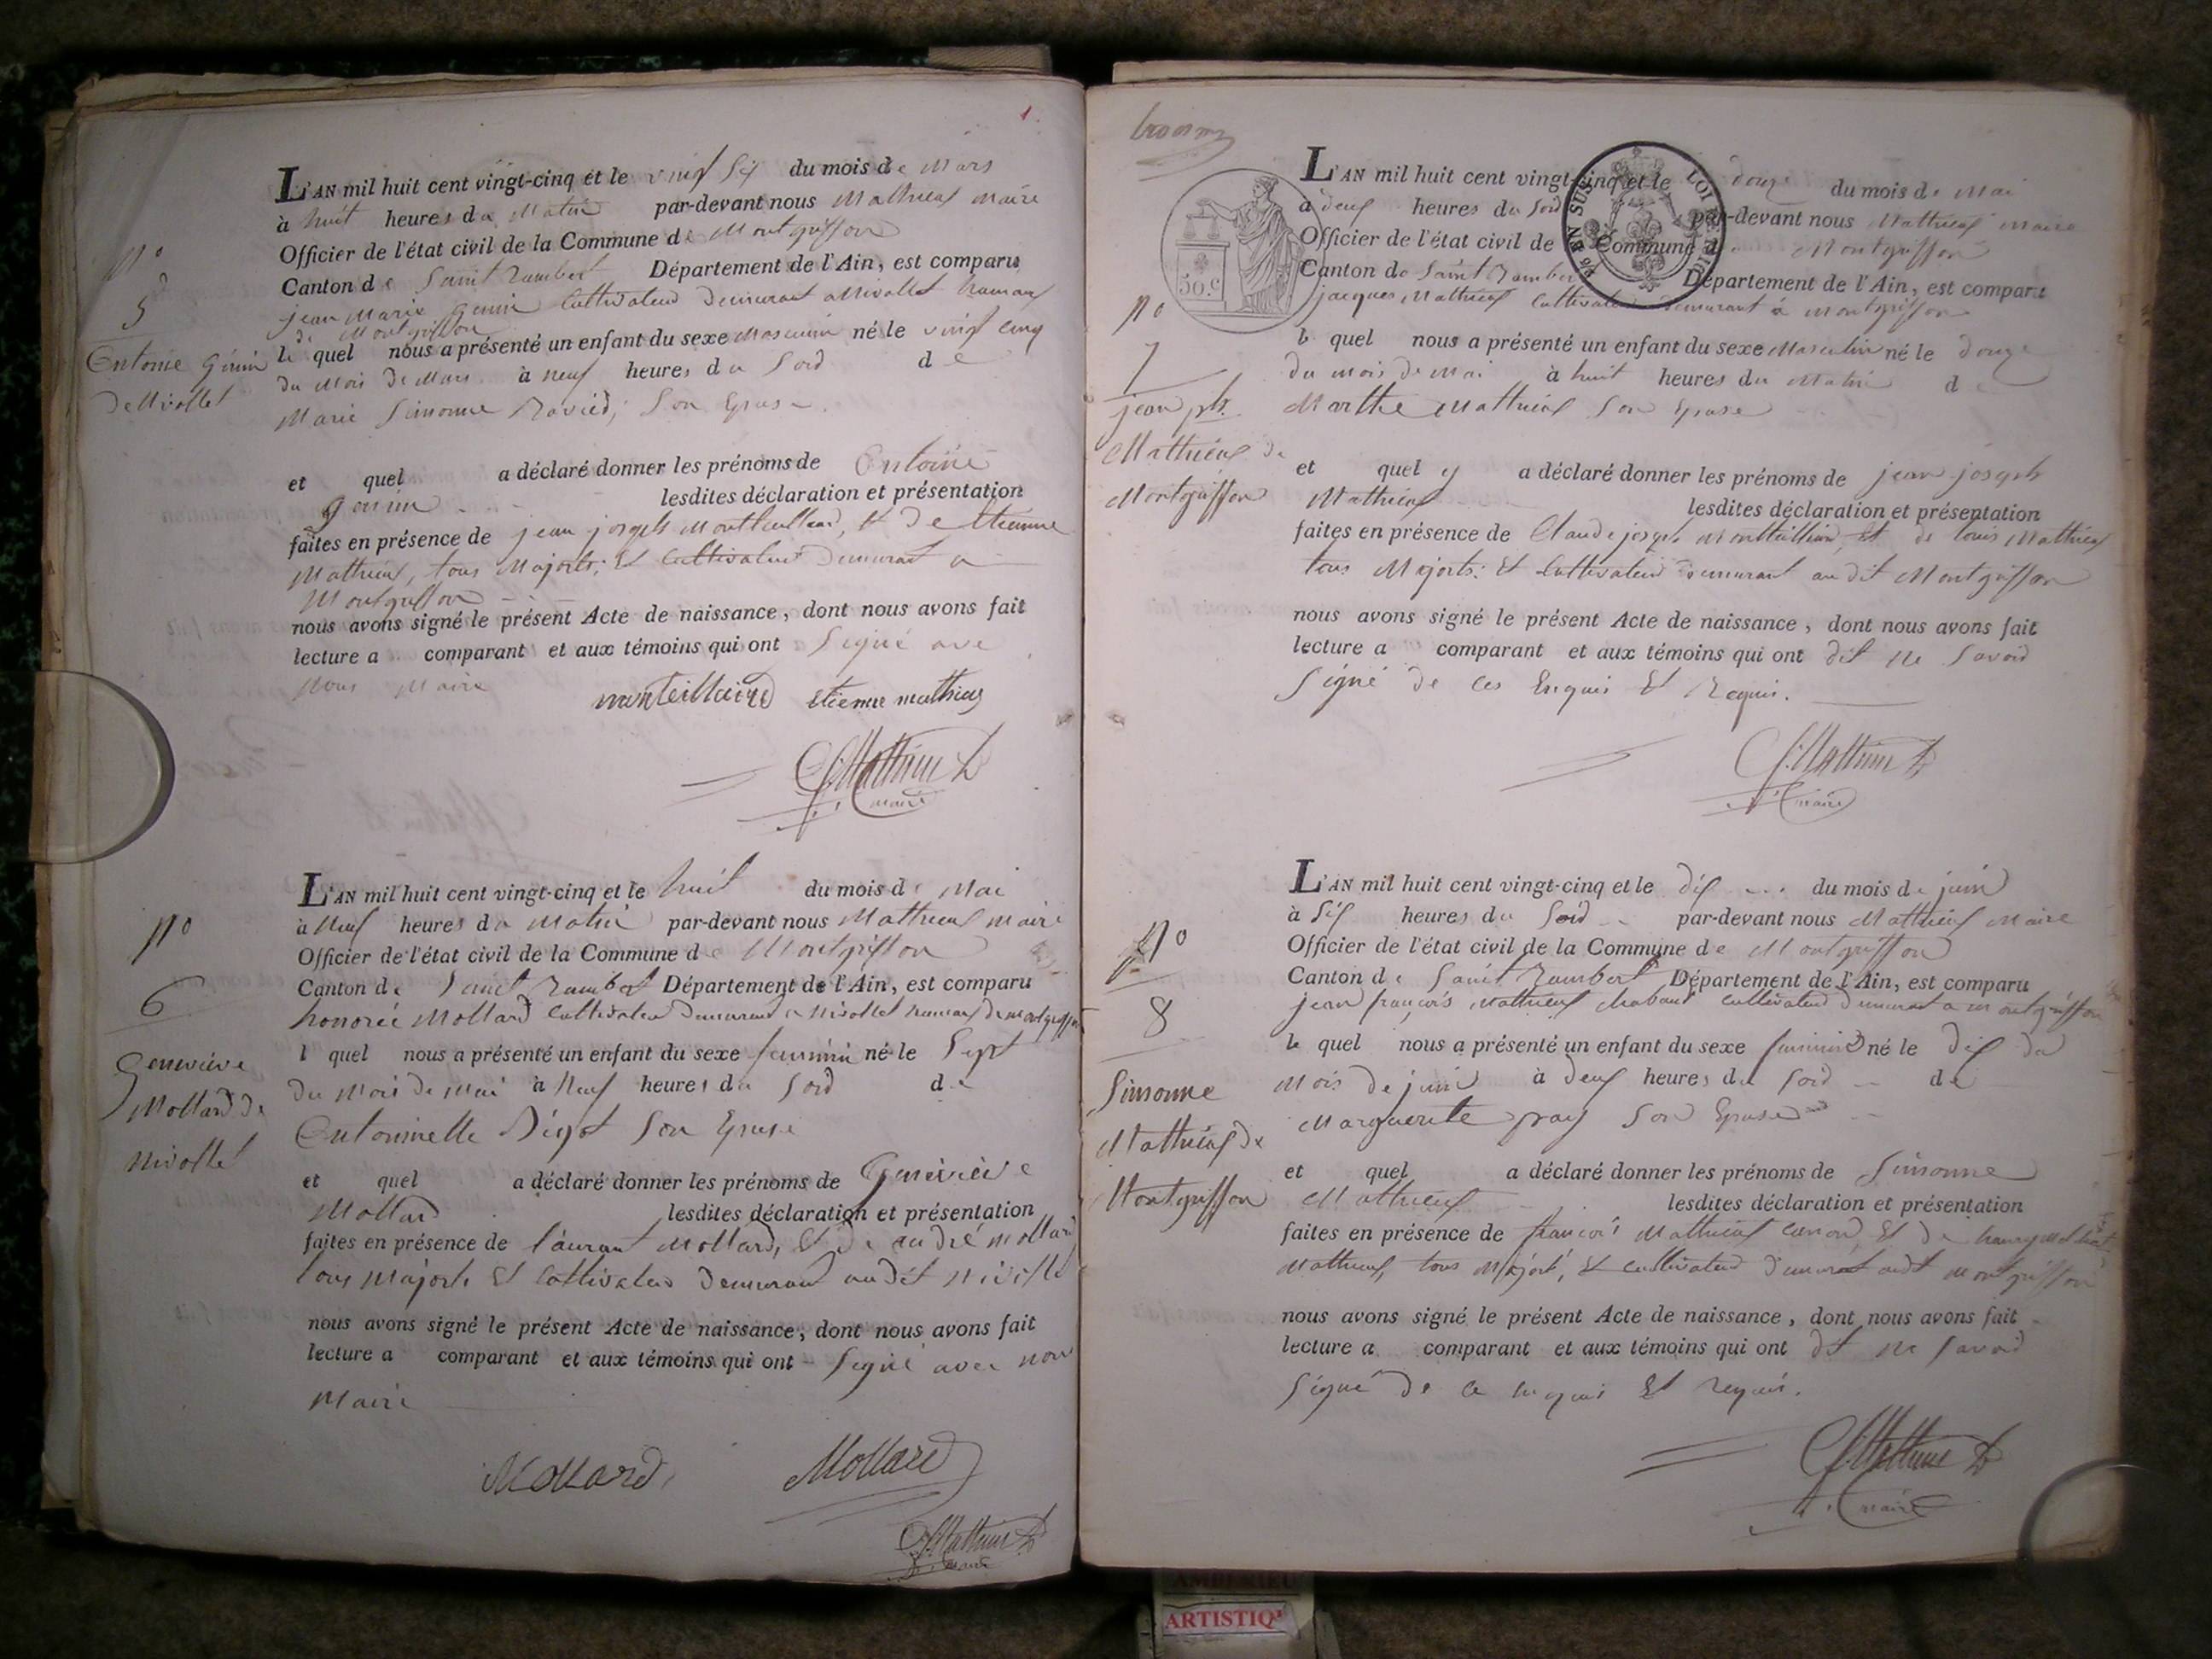 1.
L'AN mil huit cent vingt-cinq et le vingt six du mois de Mars
à huit heures du Matin par-devant nous Mathieux maire
Officier de l'état civil de la Commune de Montgriffon
Canton de Saint Rambert Département de l'Ain, est comparu
jean Marie Genin Cultivateur demeurant a Nivollet hameaux
de Montgriffon
le quel nous a présenté un enfant du sexe Masculin né le vingt cinq
du Mois de Mars à neuf heures du Soir de
Marie Simonne Son Epouse
et quel a déclaré donner les prénoms de Antoine
Genin lesdites déclaration et présentation
faites en présence de jean joseph Montteillard, Et de Etienne
Mathieux, tous Majorts; Et Cultivateur Demeurant a
Montgriffon
nous avons signé le présent Acte de naissance, dont nous avons fait
lecture a comparant et aux témoins qui ont Signé avec
nous maire
monteillaird Etienne mathieux
Mathieux
maire
No
5
Antoine Génin
de Nivollet
L'AN mil huit cent vingt-cinq et le huit du mois de Mai
à Neuf heures du Matin par-devant nous Matthieux maire
Officier de l'état civil de la Commune de Montgriffon
Canton de Saint Rambert Département de l'Ain, est comparu
honorée Mollard Cultivateur Demeurant a Nivollet hameaux de montgriffon
l quel nous a présenté un enfant du sexe feminin né le Sept
du Mois de Mai à Neuf heures du Soir de
Antoinette Digot Son Epouse
et quel a déclaré donner les prénoms de Geneviève
Mollard lesdites déclaration et présentation
faites en présence de laurant Mollard, Et de andré mollard
tous Majorts Et Cultivateur Demeurant audit Nivollet
nous avons signé le présent Acte de naissance, dont nous avons fait
lecture a comparant et aux témoins qui ont Signé avec nous
Maire
Mollard Mollard
Mathieux
maire
No
6
Geneviève
Mollard de
Nivollet
L'AN mil huit cent vingt-cinq et le douze du mois de Mai
à deux heures du Soir par-devant nous Matthieux maire
Officier de l'état civil de Commune de Montgriffon
Canton de Saint Rambert Département de l'Ain, est comparu
jacques Matthieux Cultivateur demeurant à montgriffon
le quel nous a présenté un enfant du sexe Masculin né le douze
du mois de Mai à huit heures du Matin de
Marthe Matthieux Son Epouse
et quel y a déclaré donner les prénoms de jean joseph
Mathieux lesdites déclaration et présentation
faites en présence de Claude joseph Montteilliard, Et de louis Mathieux
tous Majorts: Et Cultivateur demeurant au dit Montgriffon
nous avons signé le présent Acte de naissance, dont nous avons fait
lecture a comparant et aux témoins qui ont dit ne Savoir
Signé de ces Enquis Et Requis.
Mathieux
maire
50.c
LOI
No
7
jean jph.
Mathieux de
Montgriffon
L'AN mil huit cent vingt-cinq et le dix du mois de juin
à Six heures du Soir par-devant nous Matthieux Maire
Officier de l'état civil de la Commune de Montgriffon
Canton de Saint Rambert Département de l'Ain, est comparu
jean françois Mathieux Cultivateur demeurant a montgriffon
le quel nous a présenté un enfant du sexe feminin né le dix du
Mois de juin à deux heures du Soir de
Marguerite Son Epouse
et quel a déclaré donner les prénoms de Simonne
Mathieux lesdites déclaration et présentation
faites en présence de françois Mathieux Et de
Mathieux, tous Majort, Et Cultivateur demeurant audit montgriffon
nous avons signé le présent Acte de naissance, dont nous avons fait
lecture a comparant et aux témoins qui ont dit ne Savoir
Signé de ce Enquis Et requis.
Mathieux
maire
No
8
Simonne
Mathieux de
Montgriffon
ARTISTIQ